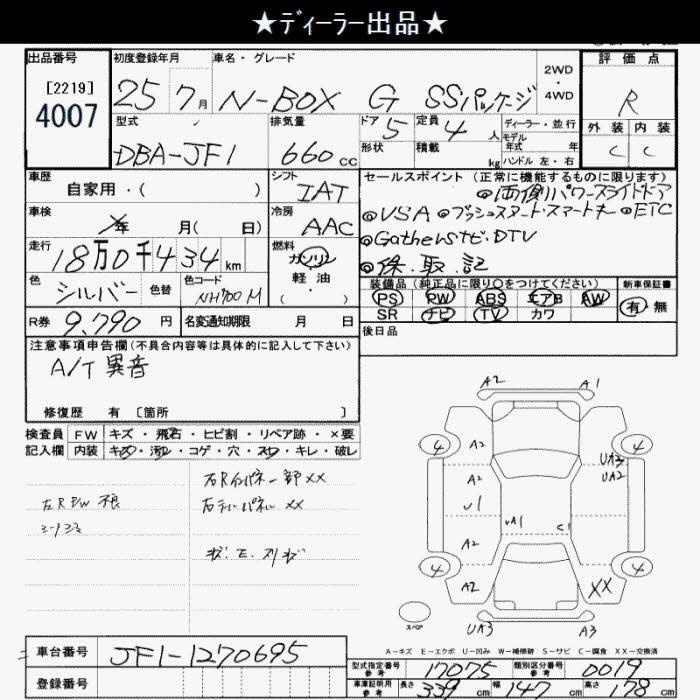 ★ディーラー出品★
出品番号
[2219]
4007
初度登録年月
25 7月
車名・グレード
N-BOX G SSパッケージ
2WD
・
4WD
評価点
R
外装 内装
C C
型式
DBA-JF1
排気量
660cc
ドア 5
形状
定員 4人
積載 kg
ディーラー・並行
モデル
年式 年
ハンドル 左・右
車歴
自家用・( )
シフト
IAT
車検
年 月( 日)
冷房
AAC
走行
18万0千434km
燃料
ガソリン
軽油
・( )
色
シルバー
色替
色コード
NH700M
R券 9,790円
名変通知期限 月 日
セールスポイント (正常に機能するものに限ります)
◎両側パワースライドドア
◎VSA ◎プッシュスタート・スマートキー ◎ETC
◎Gathersナビ・DTV
◎保.取.記
装備品 (純正品に限り○をつけてください)
PS PW ABS エアB AW
SR ナビ TV カワ
新車保証書
有・無
後日品
注意事項申告欄(不具合内容等は具体的に記入して下さい)
A/T 異音
修復歴 有 [箇所 ]
検査員 FW キズ・飛石・ヒビ割・リペア跡・×要
記入欄 内装 キズ・汚れ・コゲ・穴・スレ・キレ・破レ
右Rインパネ一部××
右テールパネル ××
A2 A1
4 A2 4
UA3
UA2
A2
U1
UA1 C1
A2
4 A2 XX 4
スペア
UA3 A3
A-キズ E-エクボ U-凹み W-補修跡 S-サビ C-腐食 XX-交換済
車台番号 JF1-1270695
登録番号
型式指定番号
参考
17075
類別区分番号
参考
0019
車庫証明用
参考
長さ 339cm 幅 147cm 高さ 178cm